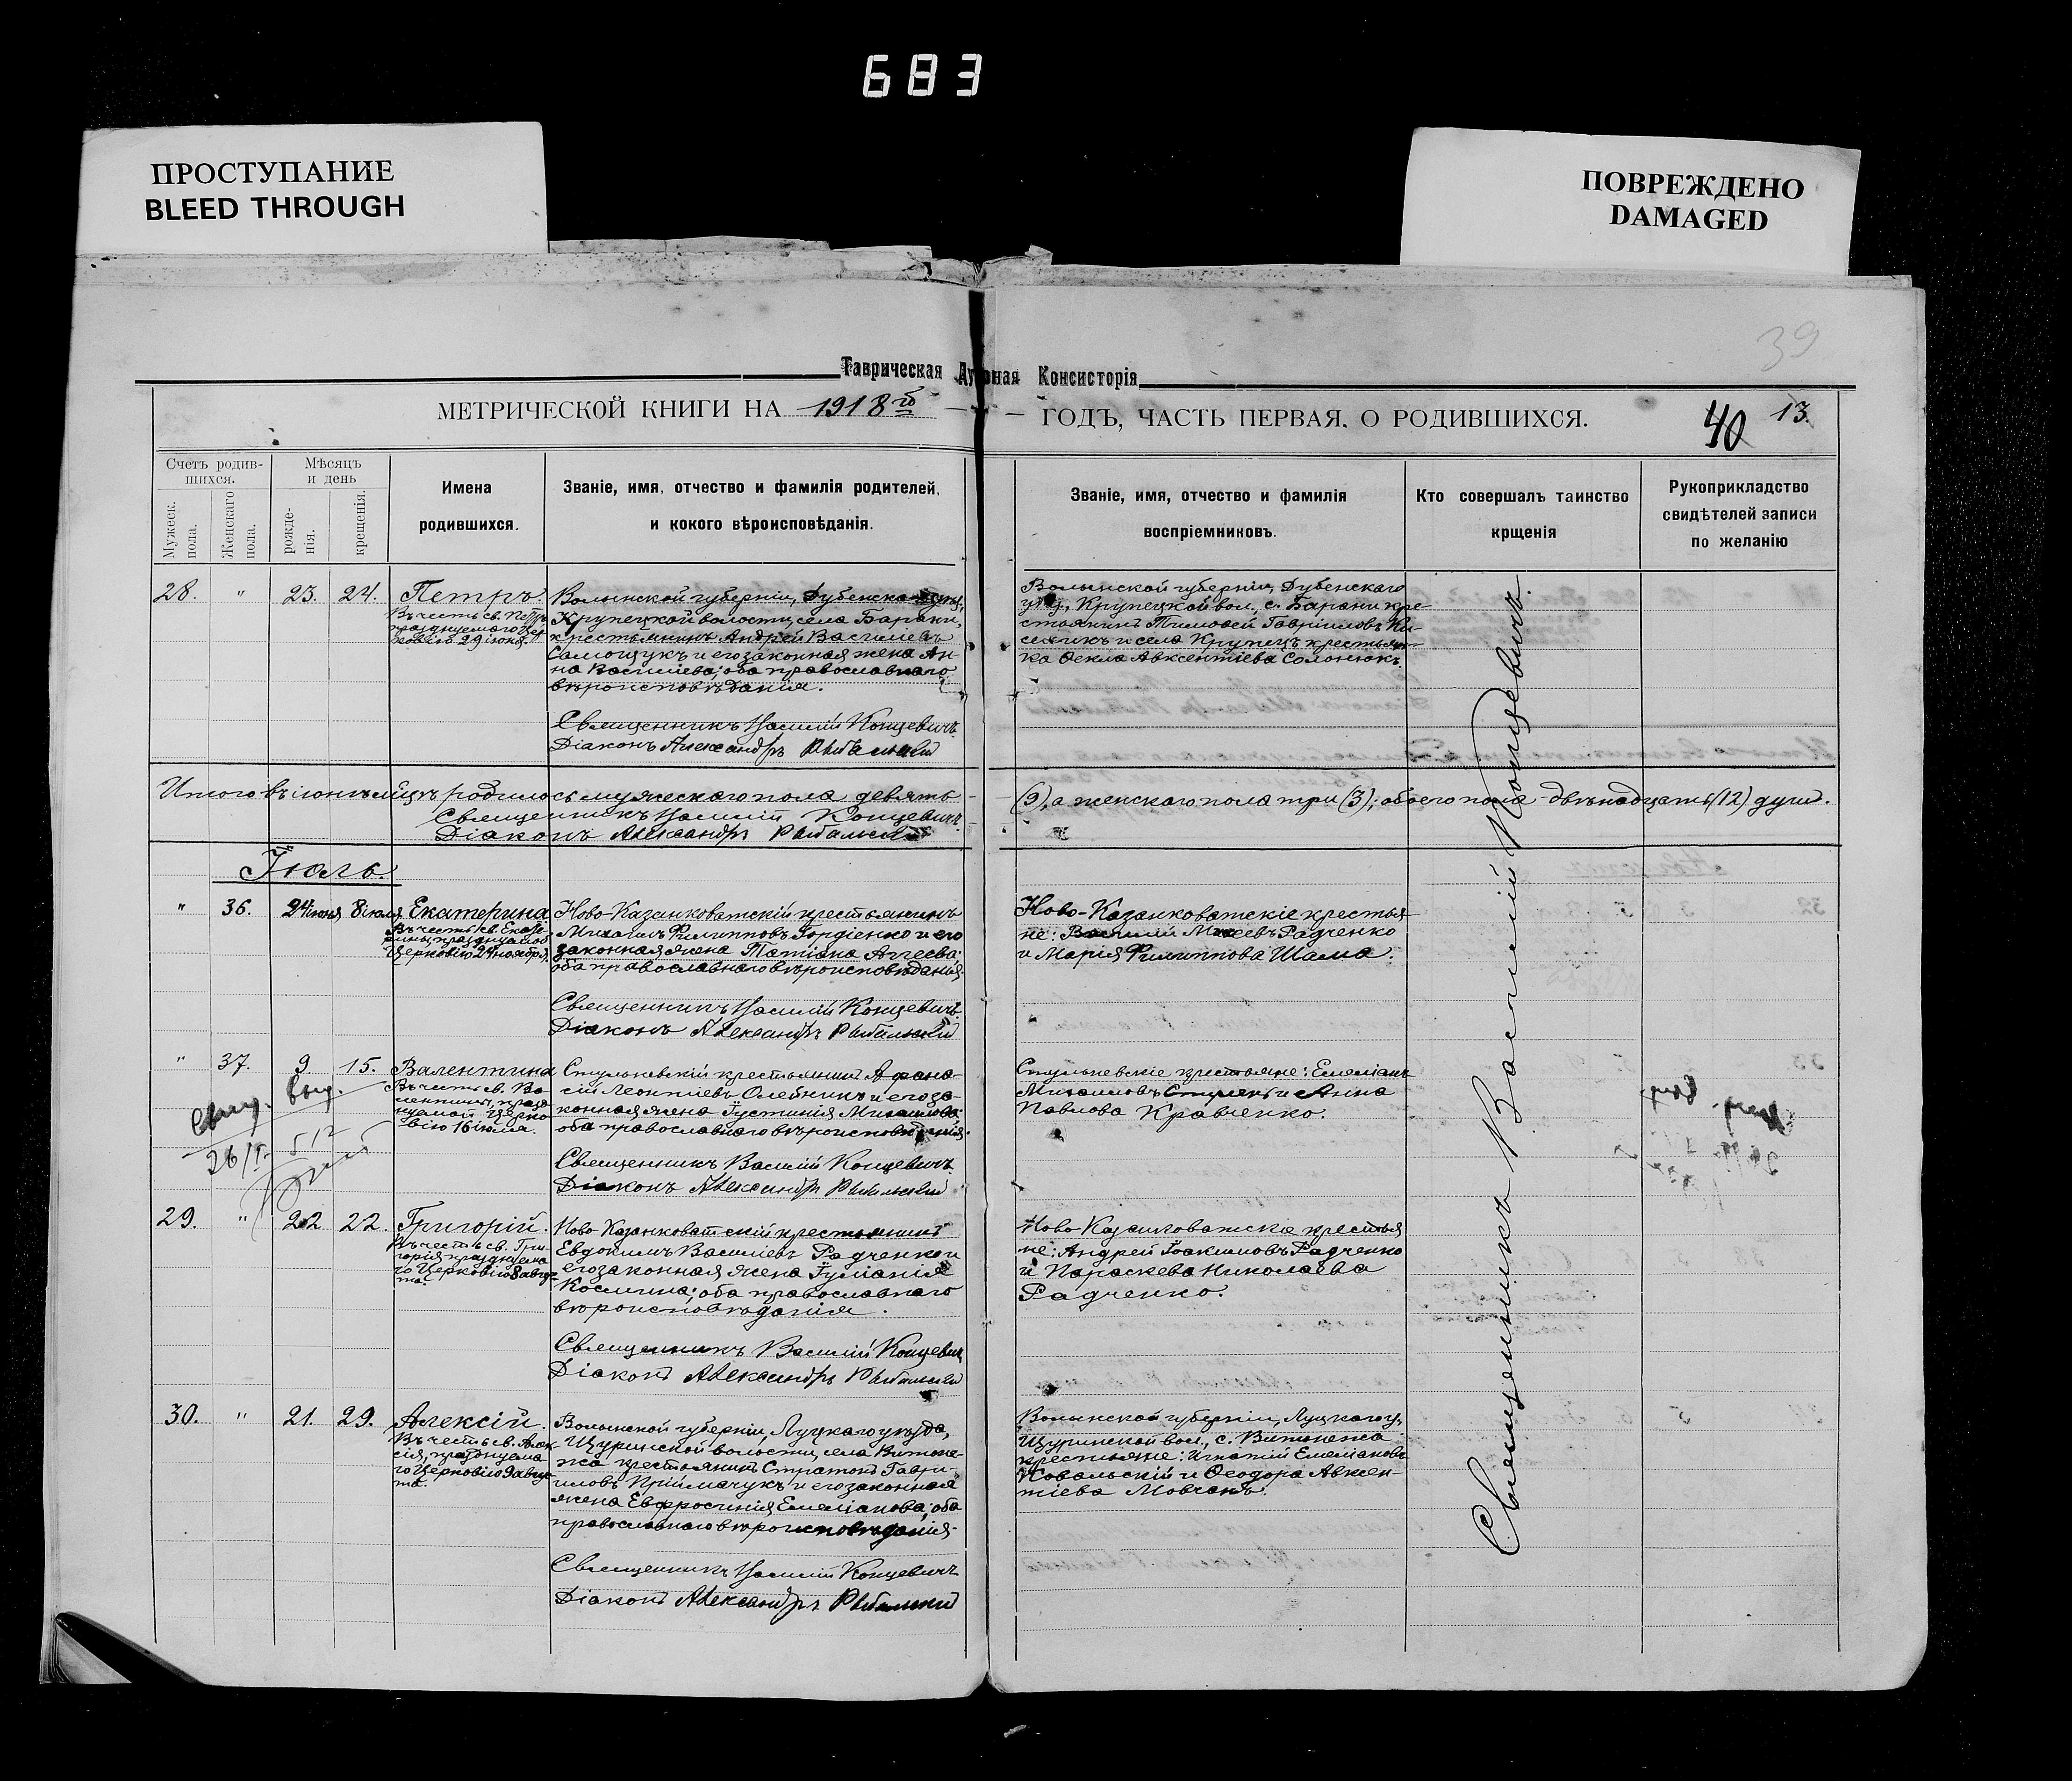 683
ПРОСТУПАНИЕ
BLEED THROUGH
ПОВРЕЖДЕНО
DAMAGED
39
Таврическая Духовная Консисторія
МЕТРИЧЕСКОЙ КНИГИ НА 1918го ГОДЪ, ЧАСТЬ ПЕРВАЯ, О РОДИВШИХСЯ.
40 13.
Счетъ родив-
шихся.
Мужеск.
пола.
Женскаго
пола.
Мѣсяцъ
и день
рожде-
нія.
крещенія.
Имена
родившихся.
Званіе, имя, отчество и фамилія родителей,
и кокого вѣроисповѣданія.
Званіе, имя, отчество и фамилія
воспріемниковъ.
Кто совершалъ таинство
крщенія
Рукоприкладство
свидѣтелей записи
по желанію
28. " 23. 24. Петръ.
Въ честь св. Петра
празднуемаго Цер
ковію 29 іюня.
Волынской губерніи, Дубенскаго
Крупецкой волости, села Барани,
крестьянинъ Андрей Василіевъ
Самощукъ и его законная жена Ан-
на Василіева; оба православнаго
вѣроисповѣданія.
Священникъ Василій Концевичъ
Діаконъ Александръ Рыбальскій
Волынской губерніи, Дубенскаго
Крупецкой вол., с. Барани кре-
стьянинъ Тимофей Гавріиловъ
и села Крупецъ крестьян-
ка Ѳекла Авксентіева Солонюкъ.
Итого въ іюнѣ м-цѣ родилось мужескаго пола девять (9), а женскаго пола три (3); обоего пола двѣнадцать (12) душъ.
Священникъ Василій Концевичъ
Діаконъ Александръ Рыбальскій
Іюль.
" 36. 24 іюня 8 іюля Екатерина
Въ честь св. Екате
рины, празднуемой
Церковію 24 ноября.
Ново-Казанковатскій крестьянинъ
Михаилъ Филипповъ Гордіенко и его
законная жена Татіана Аггеева;
оба православнаго вѣроисповѣданія
Священникъ Василій Концевичъ
Діаконъ Александръ Рыбальскій
Ново-Казанковатскіе крестья-
не: Василій Радченко
и Марія Филиппова Шама.
" 37. 9. 15. Валентина
Въ честь св. Ва
лентины, празд
нуемой Церко
вію 16 іюля.
крестьянинъ Афана-
сій Леонтіевъ Олейникъ и его за-
конная жена Іустинія Михаилова;
оба православнаго вѣроисповѣданія.
Священникъ Василій Концевичъ
Діаконъ Александръ Рыбальскій
крестьяне: Емеліанъ
Михаиловъ и Анна
Павлова Кравченко.
29. " 22 22. Григорій.
Въ честь св. Гри-
горія празднуема
го Церковію 8 авгус
та.
Ново-Казанковатскій крестьянинъ
Евдокимъ Василіевъ Радченко и
его законная жена Іуліанія
Космина; оба православнаго
вѣроисповѣданія.
Священникъ Василій Концевич
Діаконъ Александръ Рыбальскій
Ново-Казанковатскіе крестья
не: Андрей Іоакимовъ Радченко
и Параскева Николаева
Радченко.
30. " 21. 29. Алексій.
Въ честь св. Алек
сія, празднуема
го Церковію 9 авгус
та.
Волынской губерніи, Луцкаго уѣзда,
Щуринской волости, села Витоне-
жа крестьянинъ Стратонъ Гаврі-
иловъ Пріймачукъ и его законная
жена Евфросинія Емеліанова; оба
православнаго вѣроисповѣданія.
Священникъ Василій Концевичъ
Діаконъ Александръ Рыбальскій
Волынской губерніи, Луцкаго у.,
Щуринской вол., с. Витонежа
крестьяне: Игнатій Емеліановъ
Ковальскій и Ѳеодора Авксен-
тіева Мовчанъ.
Священникъ Василій Концевичъ.